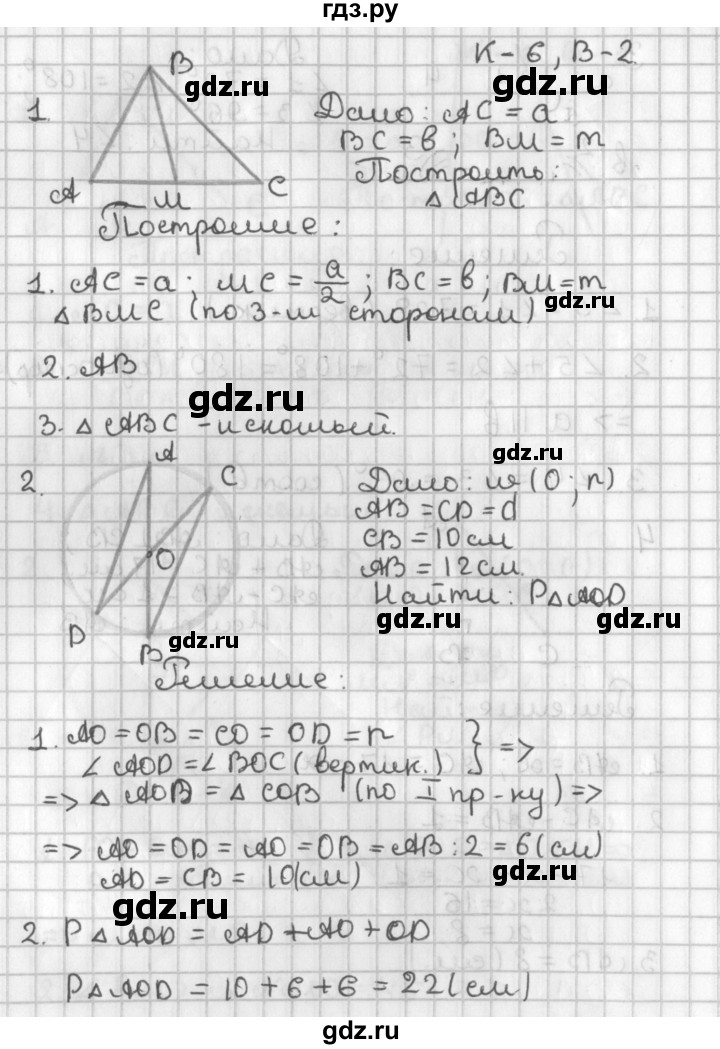 гдз.ру
К-6, В-2.
gdz.ru
gdz.ru
1.
B
A
M
C
Дано: AC = a
BC = в; BM = m
Построить:
△ ABC
Построение:
1. AC = a; MC = a/2; BC = в; BM = m
gdz.ru
△ BMC (по 3-м сторонам)
2. AB
gdz.ru
3. △ ABC - искомый.
gdz.ru
2.
A
C
O
D
B
gdz.ru
Дано: w (O; r)
AB = CD = d
CB = 10 см
AB = 12 см.
Найти: P△AOD
gdz.ru
gdz.ru
Решение:
gdz.ru
1. AO = OB = CO = OD = r
∠ AOD = ∠ BOC (вертик.) } =>
=> △ AOD = △ COB (по I пр-ку) =>
=> AO = OD = AO = OB = AB : 2 = 6 (см)
gdz.ru
AD = CB = 10 (см)
gdz.ru
2. P△AOD = AD + AO + OD
P△AOD = 10 + 6 + 6 = 22 (см)
gdz.ru
gdz.ru